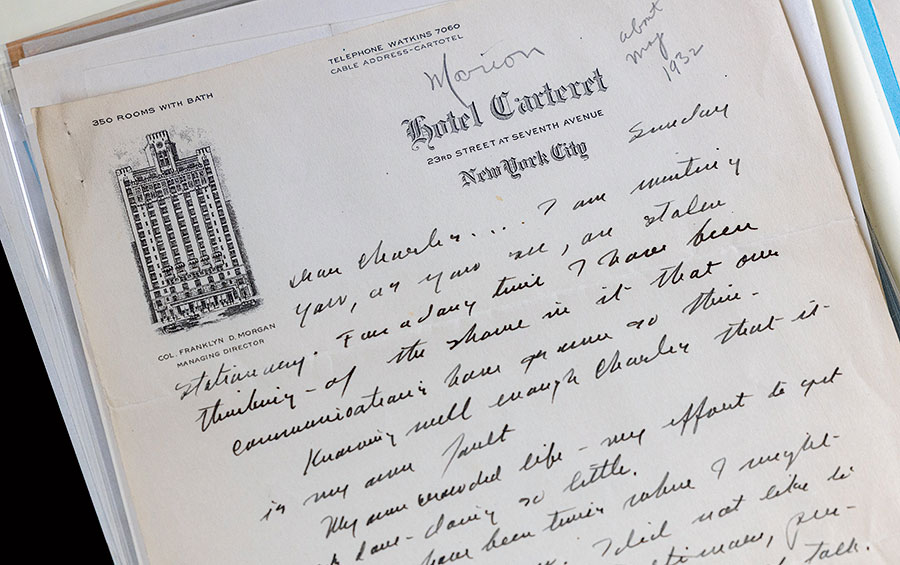 TELEPHONE WATKINS 7060
CABLE ADDRESS-CARTOTEL
Marion
about
May
1932
350 ROOMS WITH BATH
Hotel Carteret
23RD STREET AT SEVENTH AVENUE
New York City
Sunday
COL. FRANKLYN D. MORGAN
MANAGING DIRECTOR
Dear Charley.... I am writing
you, as you see, on stolen
stationery. For a long time I have been
thinking - of the shame in it that our
communications have grown so thin -
Knowing well enough Charley that it
is my own fault
My own crowded life - my effort to get
done - doing so little.
have been times when I might
I did not like to
talk.